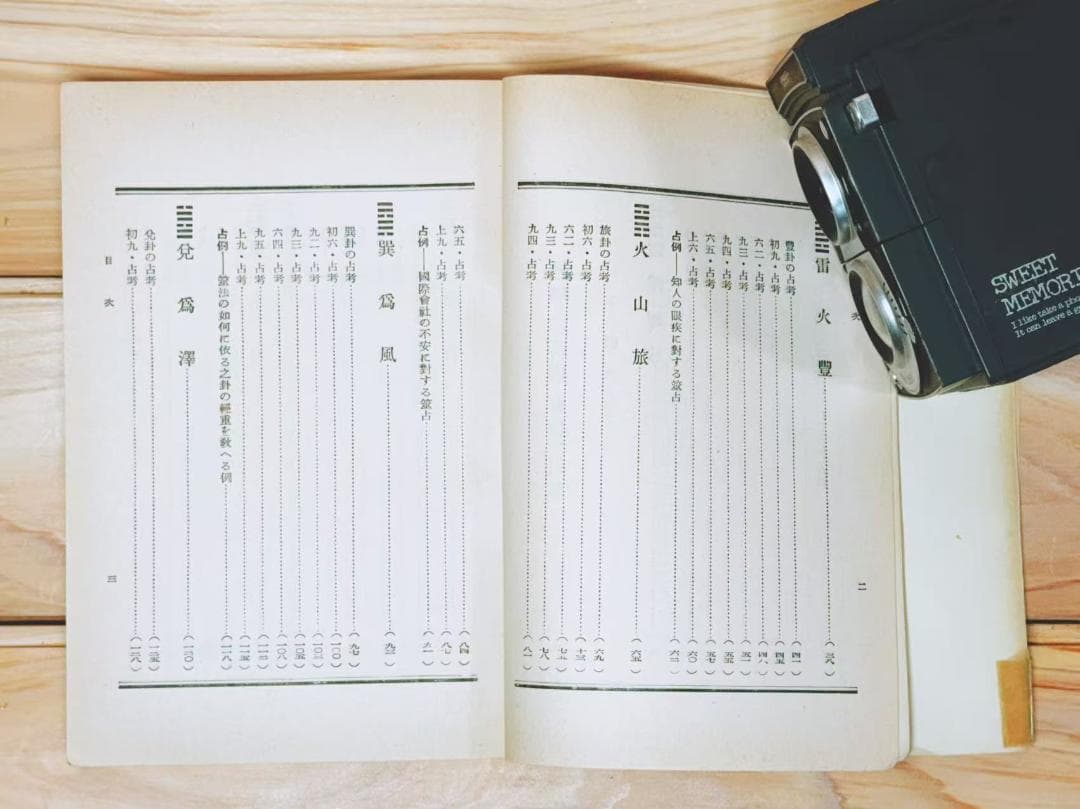 雷火豐………(三八)
豐卦の占考………(四一)
初九・占考………(四五)
六二・占考………(四八)
九三・占考………(五一)
九四・占考………(五五)
六五・占考………(五七)
上六・占考………(六〇)
占例——知人の眼疾に對する筮占………(六二)
火山旅………(六五)
旅卦の占考………(六九)
初六・占考
六二・占考
九三・占考………(七八)
九四・占考………(八一)
二
六五・占考………(八四)
上九・占考………(八七)
占例——國際會社の不安に對する筮占
巽爲風
巽卦の占考………(九七)
初六・占考………(一〇〇)
九二・占考
九三・占考………(一〇五)
六四・占考………(一〇八)
九五・占考
上九・占考………(一一五)
占例——筮法の如何に依る之卦の輕重を敎へる例………(一一八)
兌爲澤………(一二〇)
兌卦の占考………(一二五)
初九・占考………(一二八)
目次
三
SWEET
MEMORI
I like take a pho
It can leave a g